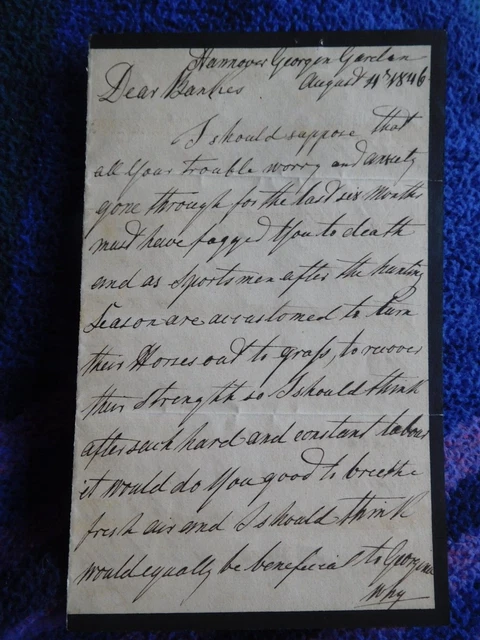 Hannover Georgen Garden
August 4th 1846
Dear Bankes
I should suppose that
all Your trouble worry and anxiety
gone through for the last six Months
must have fagged You to death
and as Sportsmen after the hunting
Season are accustomed to turn
their Horses out to grass, to recover
their Strength so I should think
after such hard and constant labour
it would do You good to breathe
fresh air and I should think
would equally be beneficial to Georgina
why